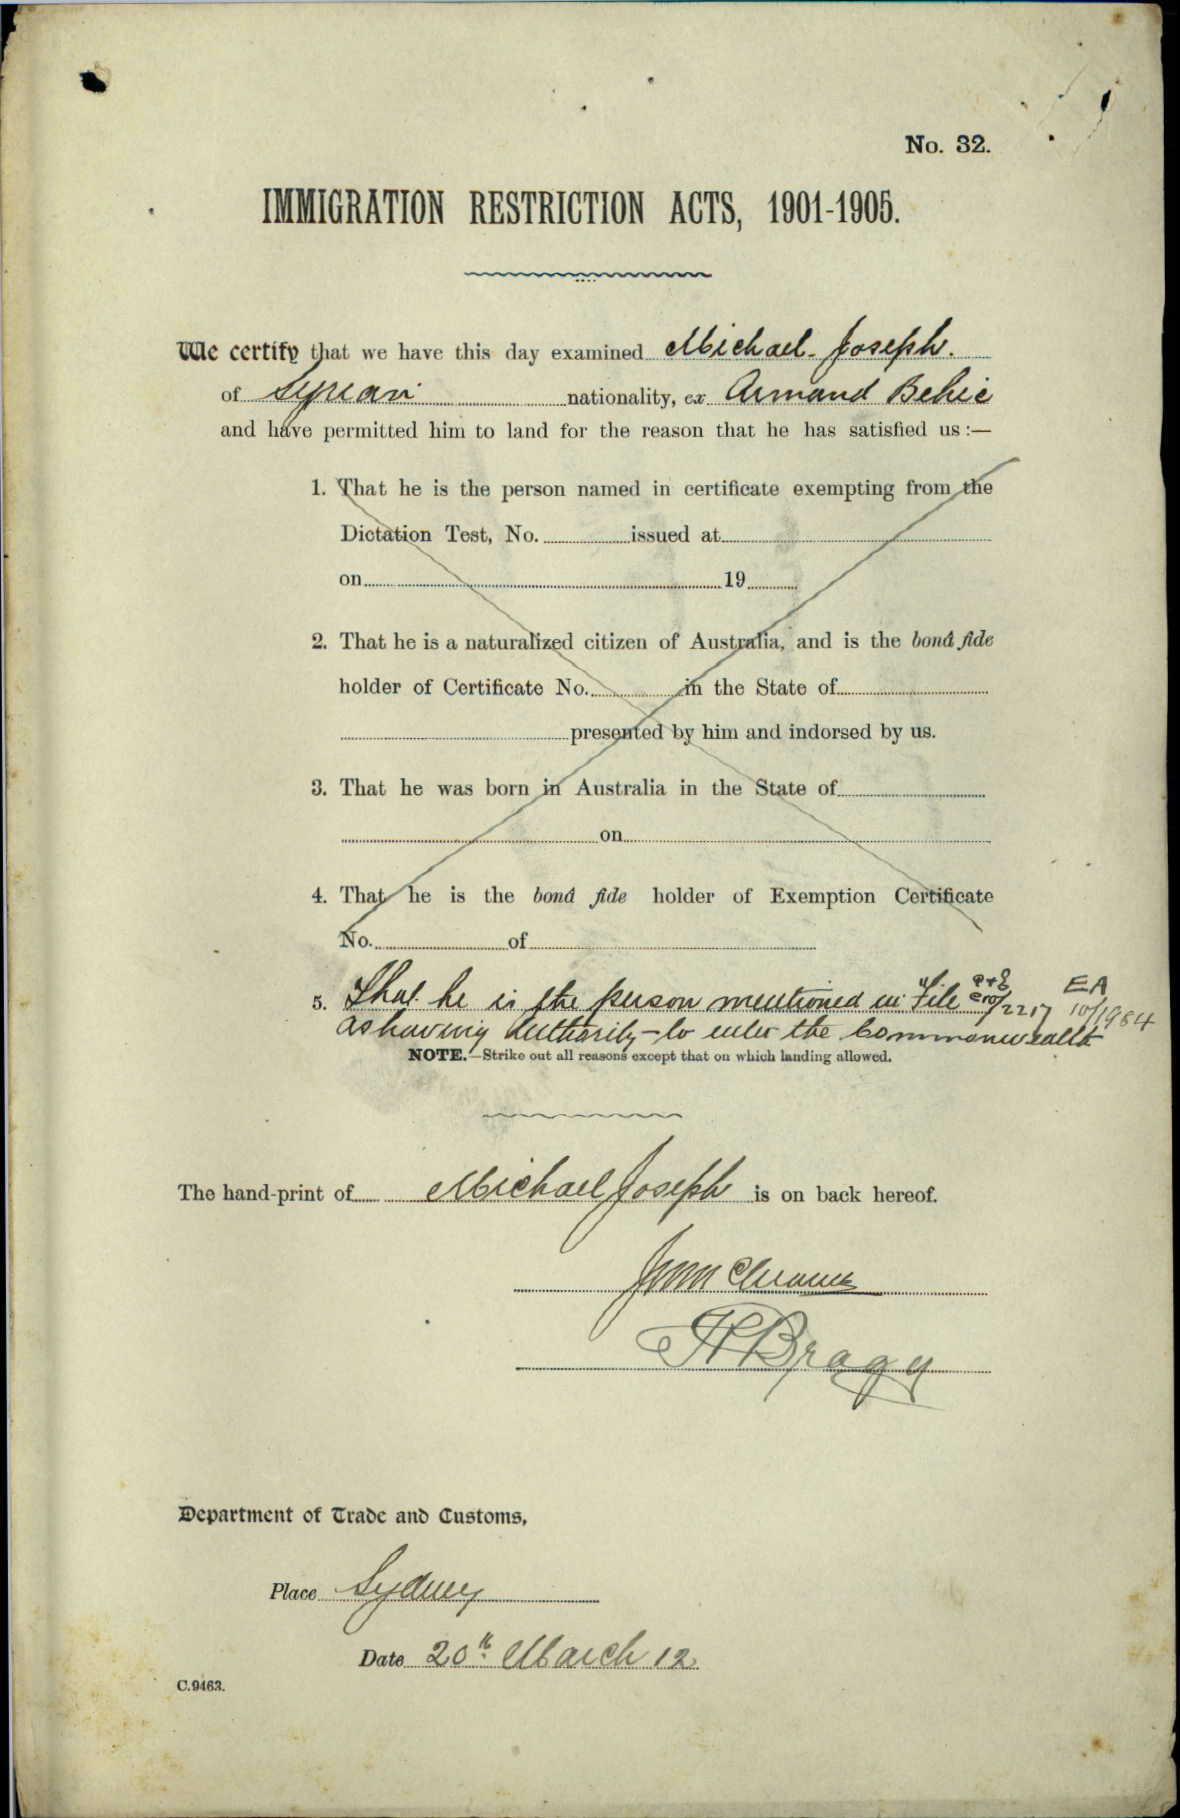 No. 32.
IMMIGRATION RESTRICTION ACTS, 1901-1905.
We certify that we have this day examined Michael Joseph.
of Syrian nationality, ex Armand Behic
and have permitted him to land for the reason that he has satisfied us :—
1. That he is the person named in certificate exempting from the
Dictation Test, No. issued at
on 19
2. That he is a naturalized citizen of Australia, and is the bonâ fide
holder of Certificate No. in the State of
presented by him and indorsed by us.
3. That he was born in Australia in the State of
on
4. That he is the bonâ fide holder of Exemption Certificate
No. of
5. That he is the person mentioned in File 10/2217 EA 10/1984
as having authority to enter the Commonwealth
NOTE.—Strike out all reasons except that on which landing allowed.
The hand-print of Michael Joseph is on back hereof.
Bragg
Department of Trade and Customs,
Place Sydney
Date 20th March 12
C.9463.